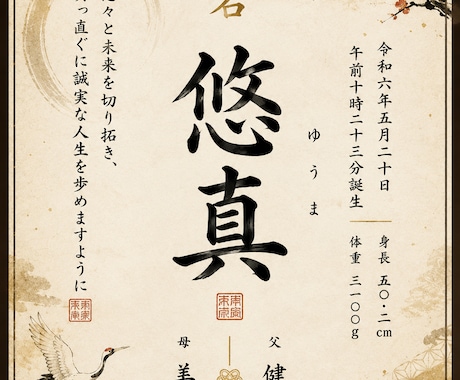 名
令和六年五月二十日
午前十時二十三分誕生
身長 五〇・二cm
体重 三一〇〇g
ゆうま
悠真
々と未来を切り拓き、
っ直ぐに誠実な人生を歩めますように
父 健
母 美